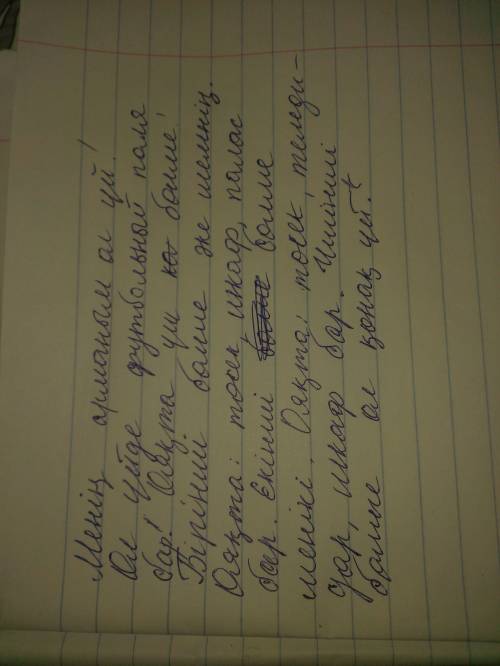 Менің арманым ол үй!
Ол үйде футбольный поля
бар! Ояқта үш болме!
Бірінші болме же шемнің.
Ояқта: тосек шкаф, палас
бар. Екінші болме
менікі. Ояқта: тосек, теледи-
дар, шкаф бар. Үшінші
болме ол қонақ үй.